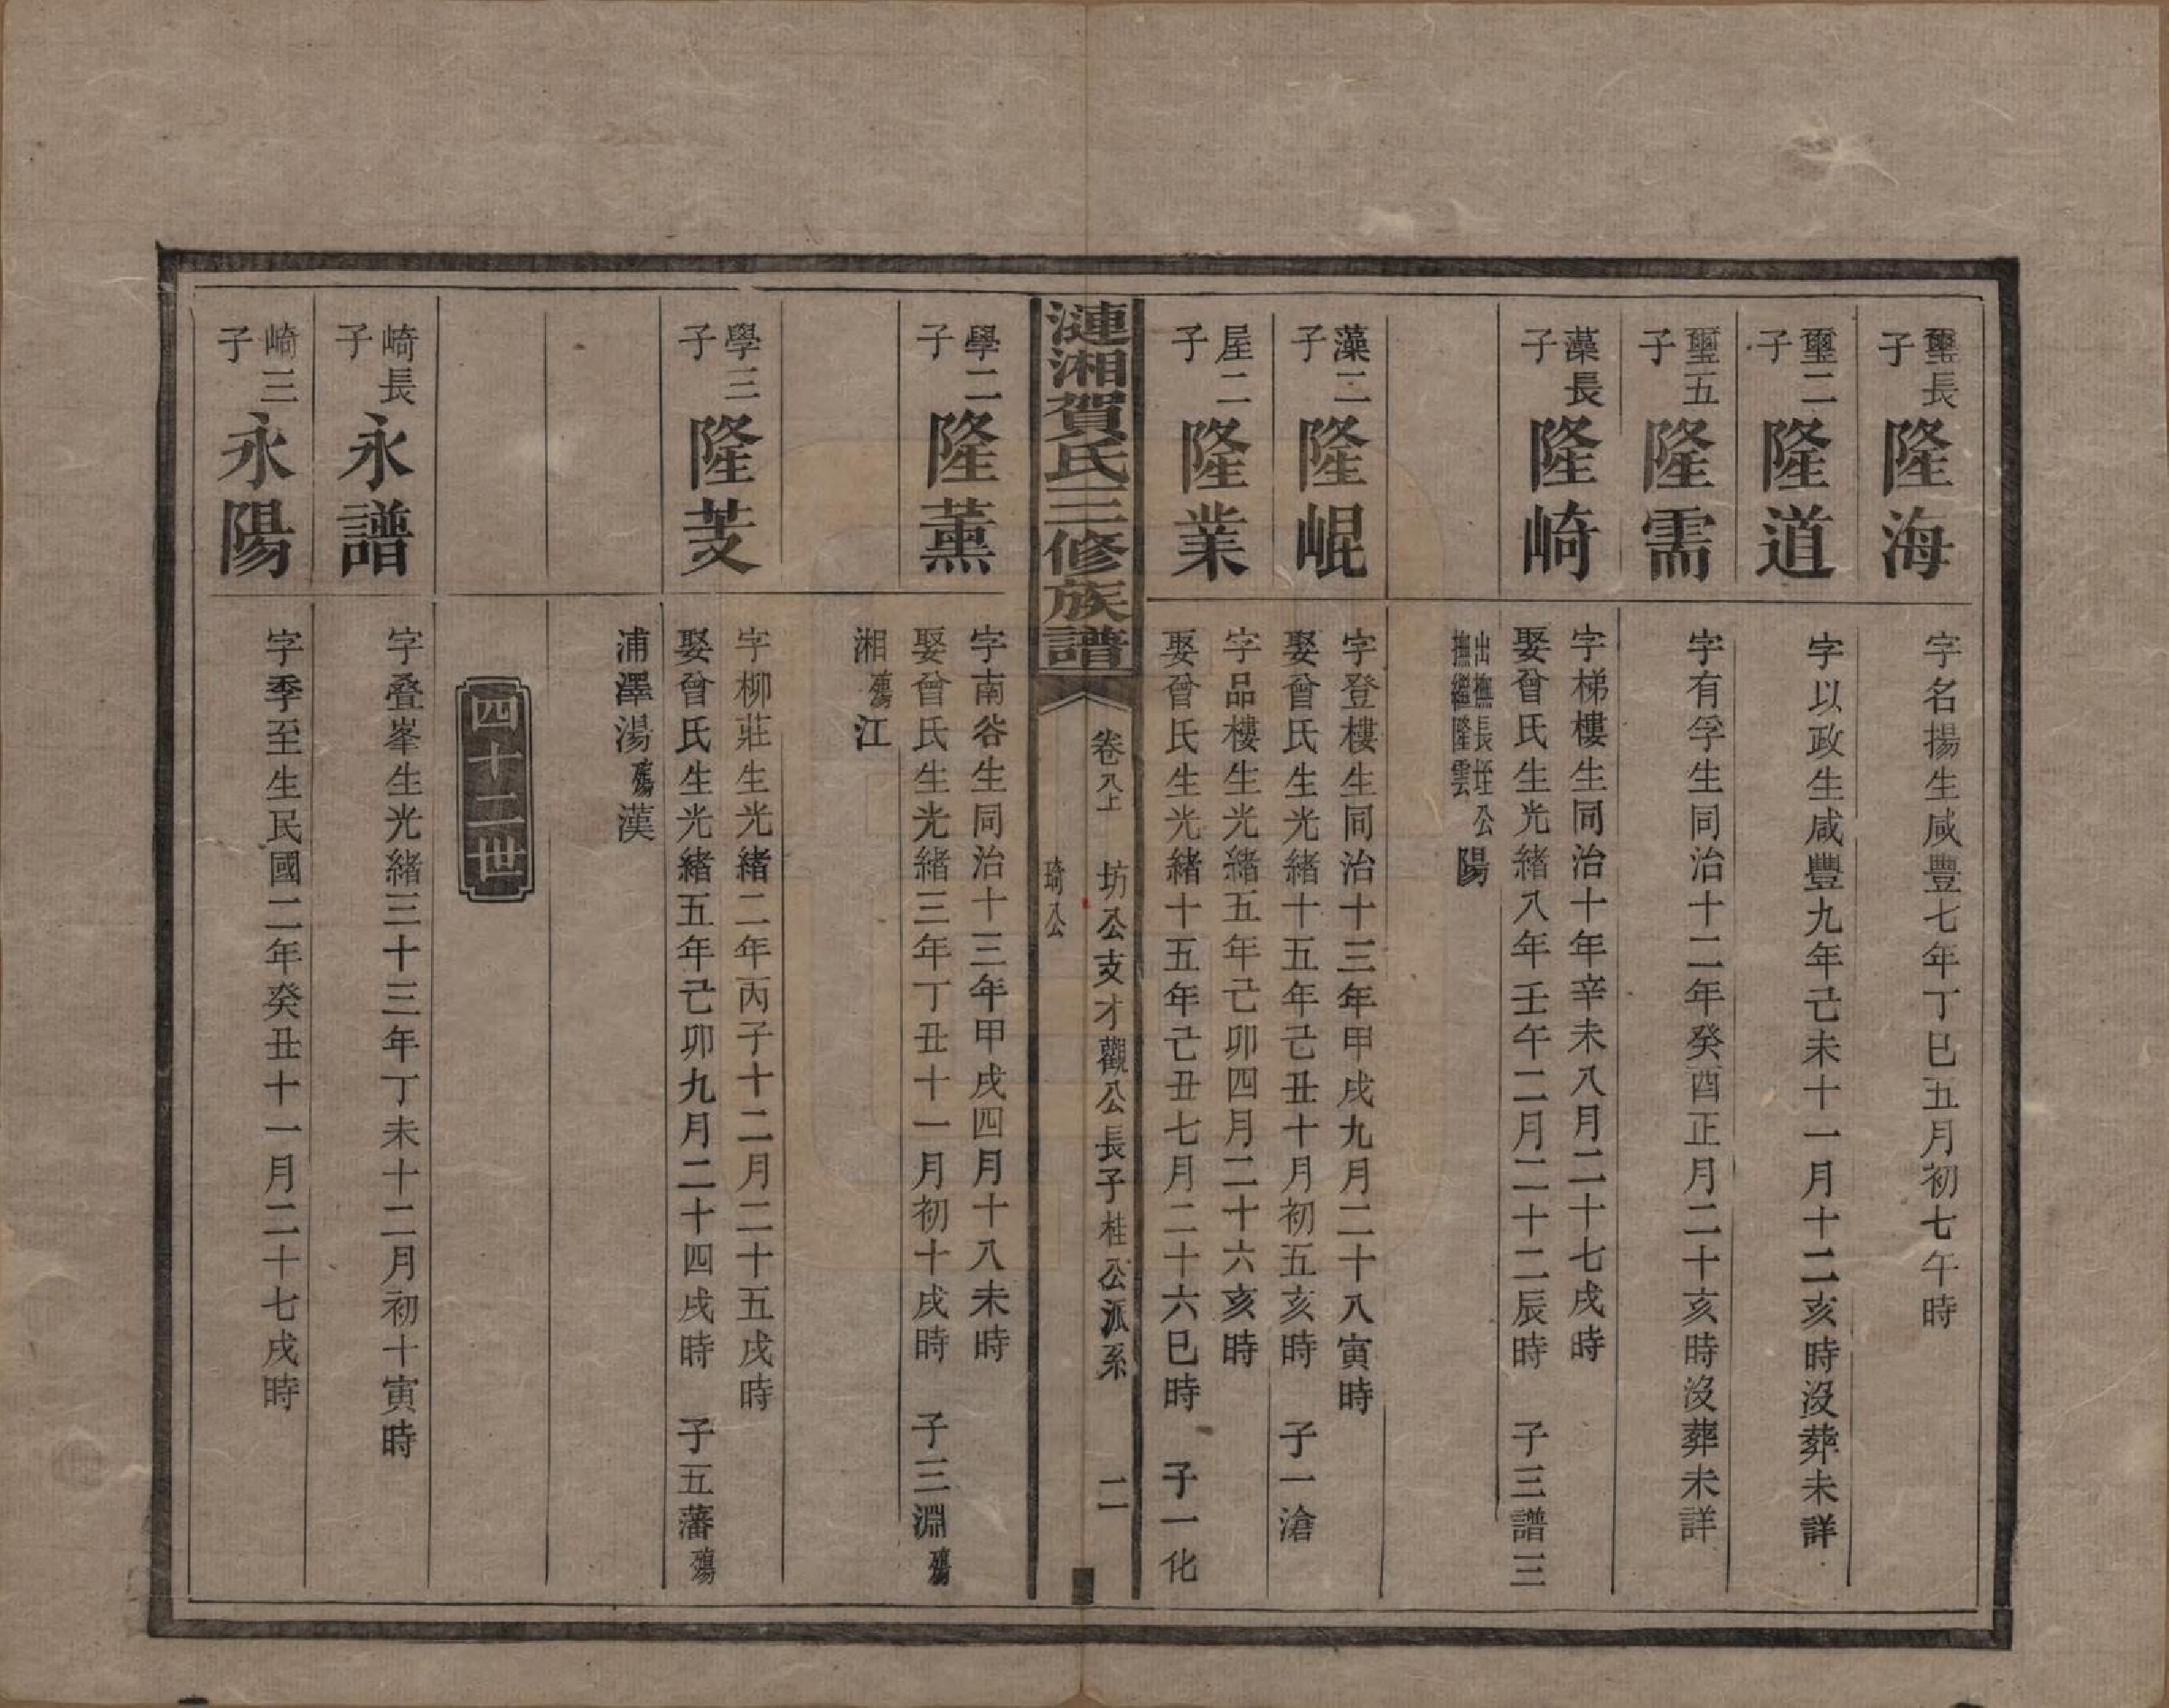 璽長子 隆海
字名揚生咸豐七年丁巳五月初七午時
璽二子 隆道
字以政生咸豐九年己未十一月十二亥時沒葬未詳
璽五子 隆需
字有孚生同治十二年癸酉正月二十亥時沒葬未詳
藻長子 隆崎
字梯樓生同治十年辛未八月二十七戌時
娶曾氏生光緒八年壬午二月二十二辰時 子三譜三
出撫長垤公撫繼隆雲 陽
藻二子 隆崐
字登樓生同治十三年甲戌九月二十八寅時
娶曾氏生光緒十五年己丑十月初五亥時 子一滄
屋二子 隆業
字品樓生光緒五年己卯四月二十六亥時
娶曾氏生光緒十五年己丑七月二十六巳時 子一化
漣湘賀氏三修族譜
卷八上 坊公支才觀公長子桂公派系 二
琦公
學二子 隆薰
字南谷生同治十三年甲戌四月十八未時
娶曾氏生光緒三年丁丑十一月初十戌時 子三淵殤
湘殤江
學三子 隆芰
字柳莊生光緒二年丙子十二月二十五戌時
娶曾氏生光緒五年己卯九月二十四戌時 子五藩殤
浦澤湯殤漢
四十二世
崎長子 永譜
字叠峯生光緒三十三年丁未十二月初十寅時
崎三子 永陽
字季至生民國二年癸丑十一月二十七戌時